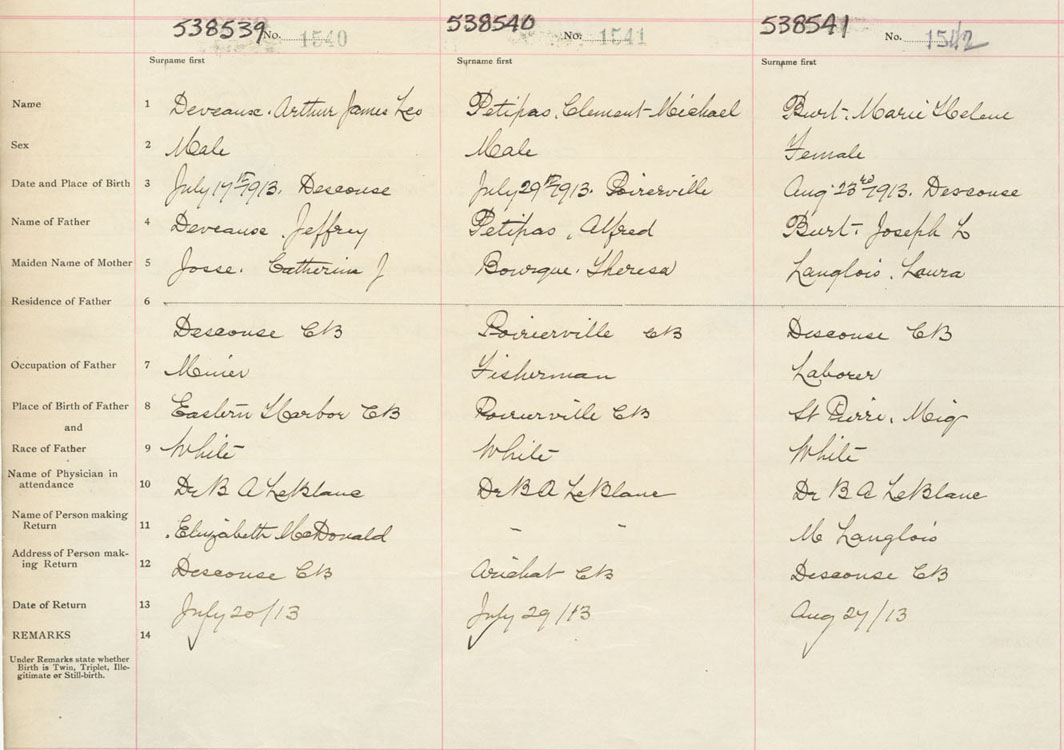 538539 No. 1540 538540 No. 1541 538541 No. 1542
Surname first Surname first Surname first
Name 1 Deveaux. Arthur James Leo Petipas, Clement-Michael Burt. Marie Helene
Sex 2 Male Male Female
Date and Place of Birth 3 July 17th 1913. Descouse July 29th 1913. Poirierville Aug 23rd 1913. Descouse
Name of Father 4 Deveaux. Jeffrey Petipas, Alfred Burt. Joseph L
Maiden Name of Mother 5 Josse. Catherine J Bourque. Theresa Langlois. Laura
Residence of Father 6
Descouse CB Poirierville CB Descouse CB
Occupation of Father 7 Miner Fisherman Laborer
Place of Birth of Father 8 Eastern Harbor CB Poirierville CB St Pierre. Miq
and
Race of Father 9 White White White
Name of Physician in
attendance 10 Dr B A LeBlanc Dr B A LeBlanc Dr B A LeBlanc
Name of Person making
Return 11 Elizabeth McDonald " " M Langlois
Address of Person mak-
ing Return 12 Descouse CB Arichat CB Descouse CB
Date of Return 13 July 20/13 July 29/13 Aug 27/13
REMARKS 14
Under Remarks state whether
Birth is Twin, Triplet, Ille-
gitimate or Still-birth.